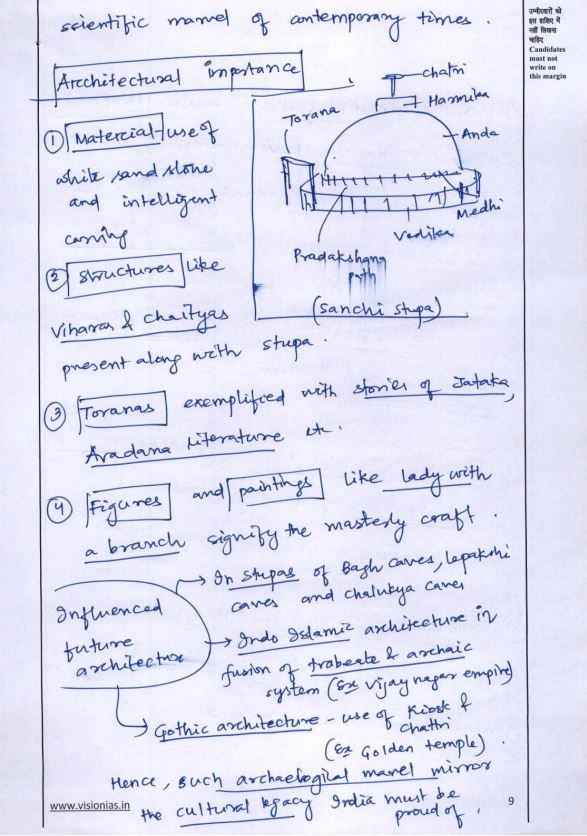 scientific marvel of contemporary times.
उम्मीदवारों को
इस हाशिए में
नहीं लिखना
चाहिए
Candidates
must not
write on
this margin
Architectural importance
① Material - use of
white sand stone
and intelligent
carving
② Structures like
Viharas & Chaityas
present along with stupa.
chatri
Harmika
Torana
Anda
Medhi
Vedika
Pradakshana
path
(Sanchi stupa)
③ Toranas exemplified with stories of Jataka,
Aradana literature etc.
④ Figures and paintings like lady with
a branch signify the masterly craft.
Influenced
future
architecture
→ In stupas of Bagh caves, lepakshi
caves and chalukya caves
→ Indo Islamic architecture in
fusion of trabeate & archaic
system (Ex Vijay nagar empire)
→ Gothic architecture - use of Kiosk &
Chattri
(Ex Golden temple).
Hence, such archaelogilal marvel mirror
the cultural legacy India must be
proud of.
www.visionias.in
9